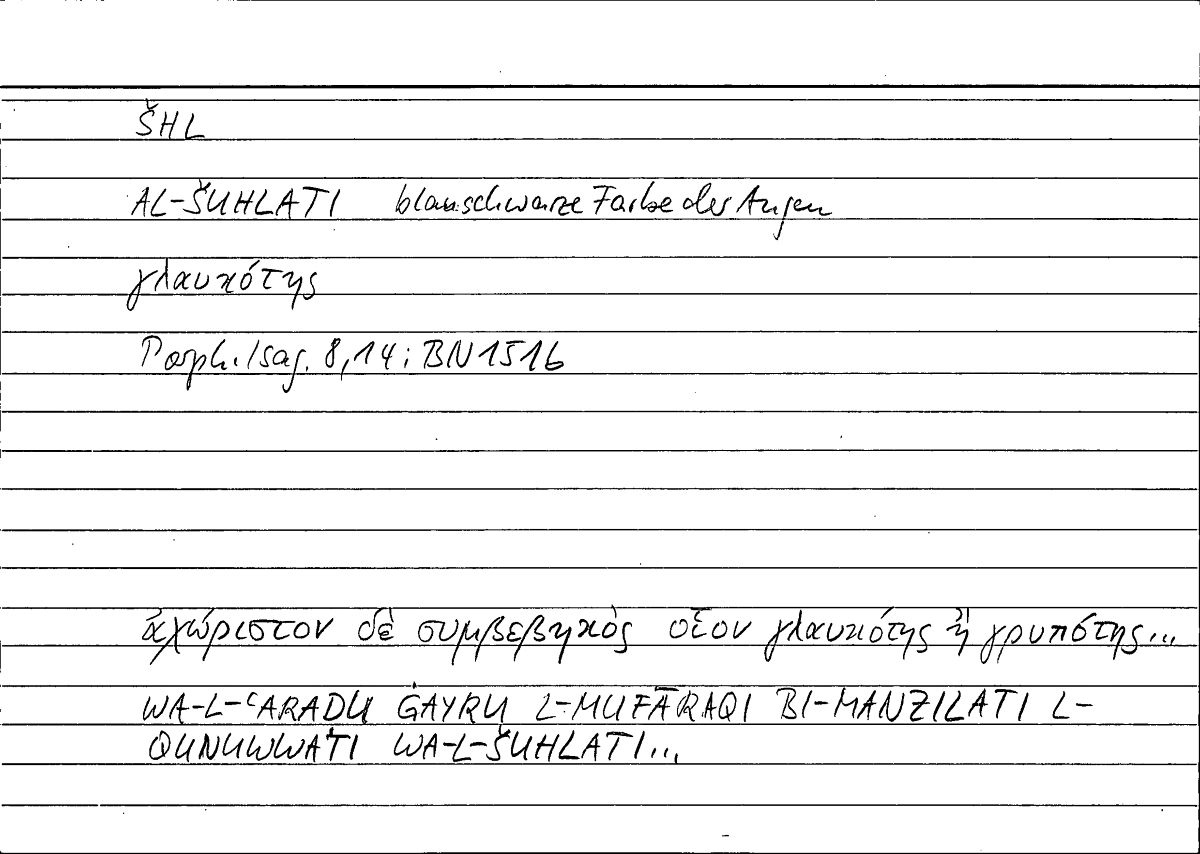 ŠHL
AL-ŠUHLATI blauschwarze Farbe der Augen
γλαυκότης
Porph. Isag. 8,14; BN 1516
ἀχώριστον δὲ συμβεβηκὸς οἷον γλαυκότης ἢ γρυπότης...
WA-L-ʿARAḌU ĠAYRU L-MUFĀRAQI BI-MANZILATI L-
QUNUWWATI WA-L-ŠUHLATI...